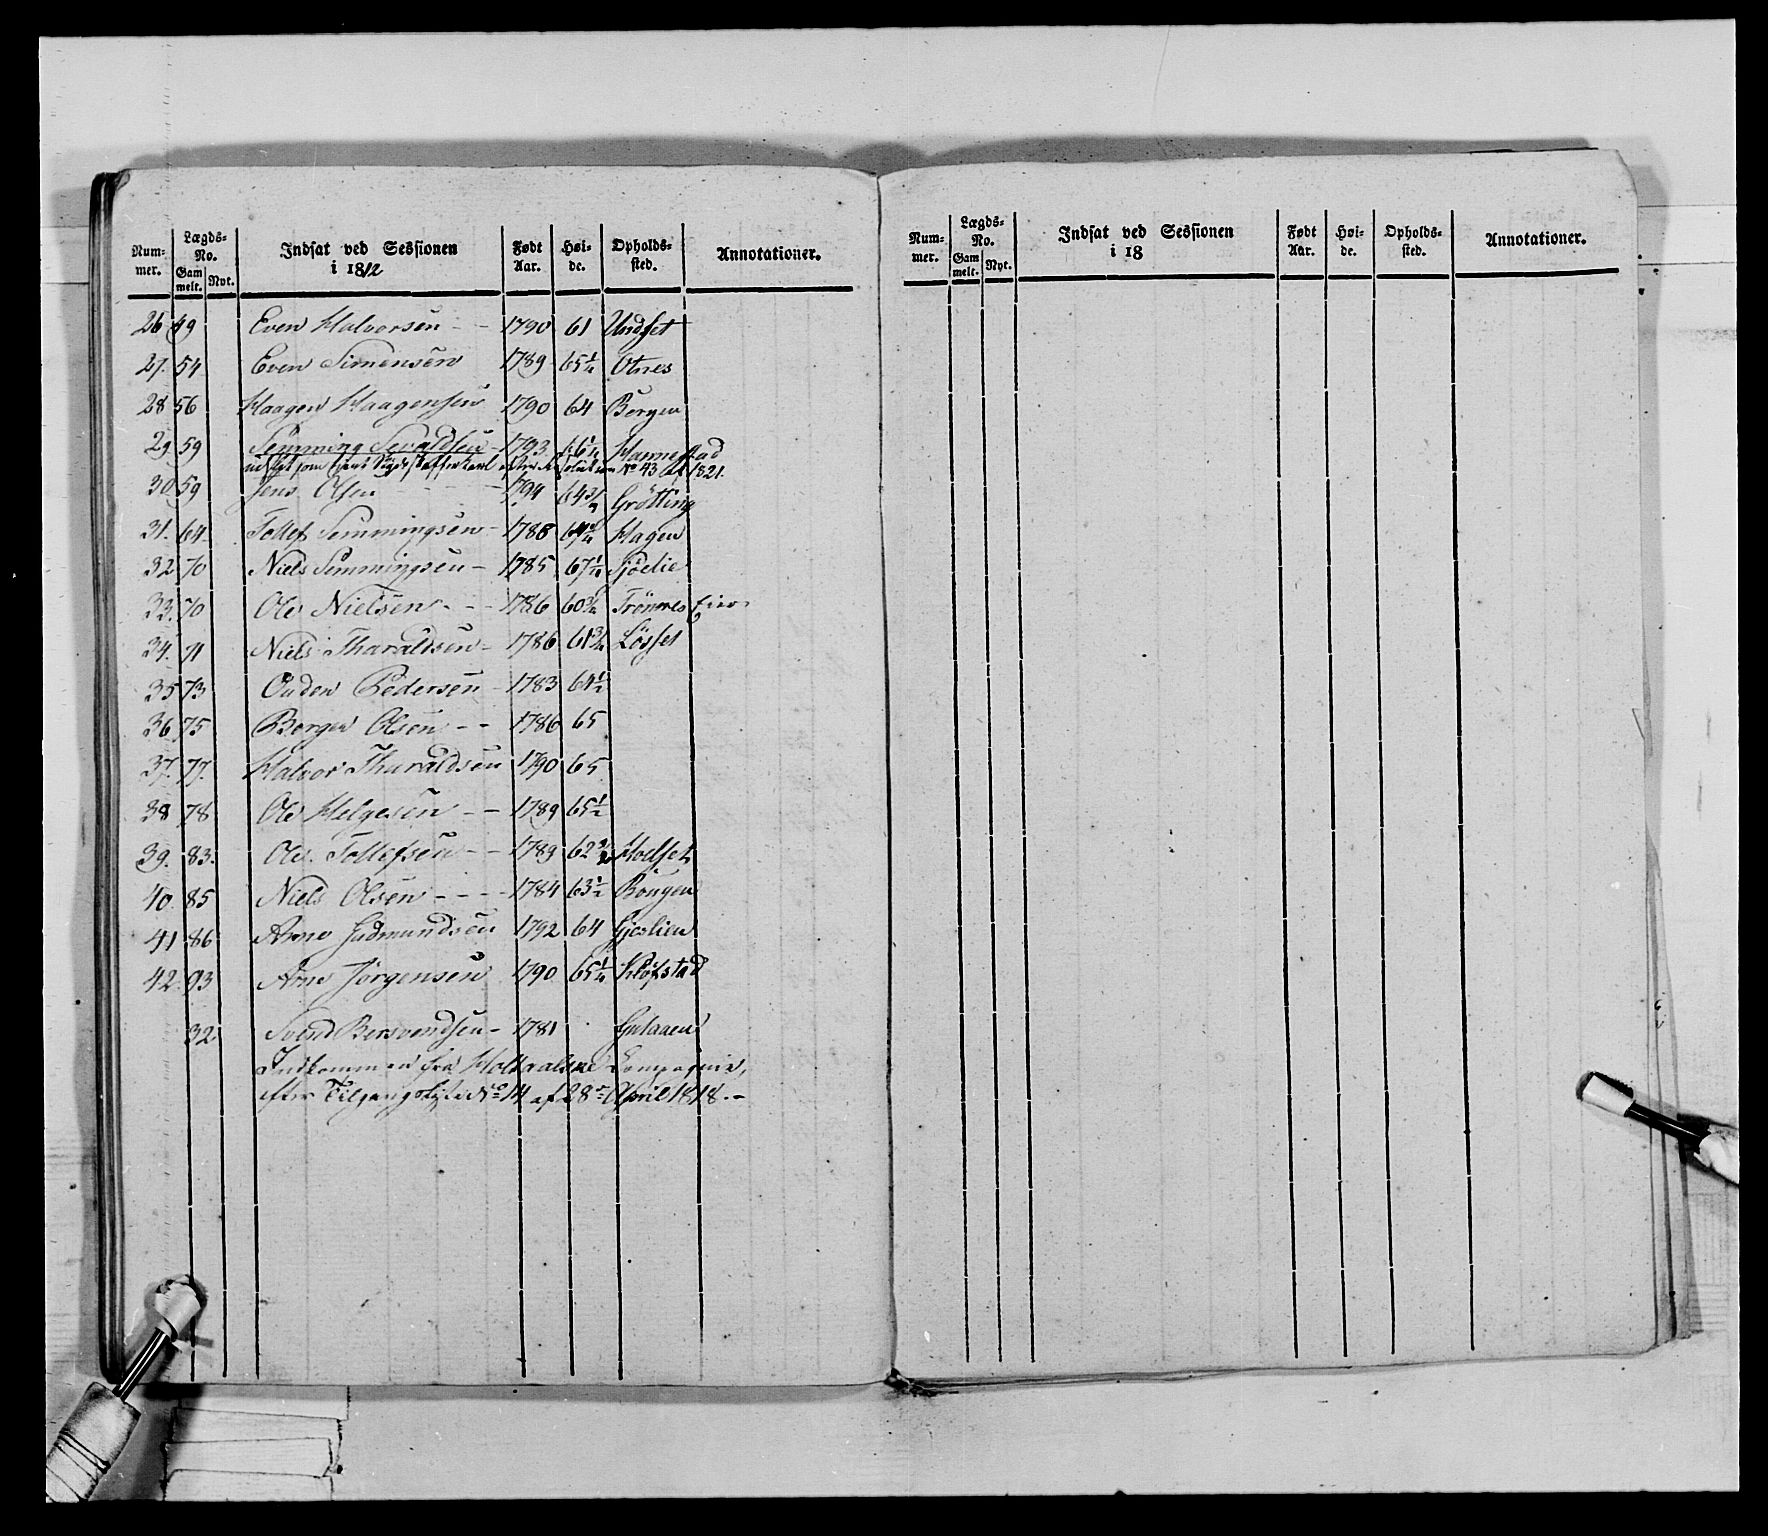 Num-
mer. Lægds-
No. Indsat ved Sessionen
i 1812 Født
Aar. Høi-
de. Opholds-
sted. Annotationer.
Gam
melt. Nyt.
26 49 Even Halvorsen - - 1790 61 Undset
27. 54 Even Simensen 1789 65 1/4 Otnes
28 56 Haagen Haagensen 1790 64 Bergen
29 59 Semming Sevaldsen - 1793 66 1/4 Hannestad
som No 43 af 1821.
30 59 Jens Olsen - - - - 1794 64 3/4 Grötting
31. 64 Tollef Semmingsen - 1788 Hagen
32 70 Niels Semmingsen - 1785 67 1/4 Sjölie
33. 70 Ole Nielsen - - - 1786 60 3/4 Trönnes Eier
34. 71 Niels Tharaldsen - 1786 61 3/4 Lösset
35 73 Ouden Pedersen - 1783 64 1/2
36 75 Berger Olsen - - 1786 65
37. 77. Halvor Tharaldsen 1790 65
38 78 Ole Helgesen - - 1789 65 1/2
39. 83. Ole Tollefsen - - 1789 62 3/4 Moelset
40 85 Niels Olsen - - - - 1784 63 1/2 Bougen
41 86 Arne Gudmundsen 1792 64 Gjeslien
42. 93 Arne Jörgensen 1790 65 1/4 Kløfstad
32 Svend Bersvendsen - 1781 Gulaaen
Indkommen fra Holtaalske Compagnie,
efter Tilgangsliste No 14 af 28de April 1818. -
Num-
mer. Lægds-
No. Indsat ved Sessionen
i 18 Født
Aar. Høi-
de. Opholds-
sted. Annotationer.
Gam
melt. Nyt.